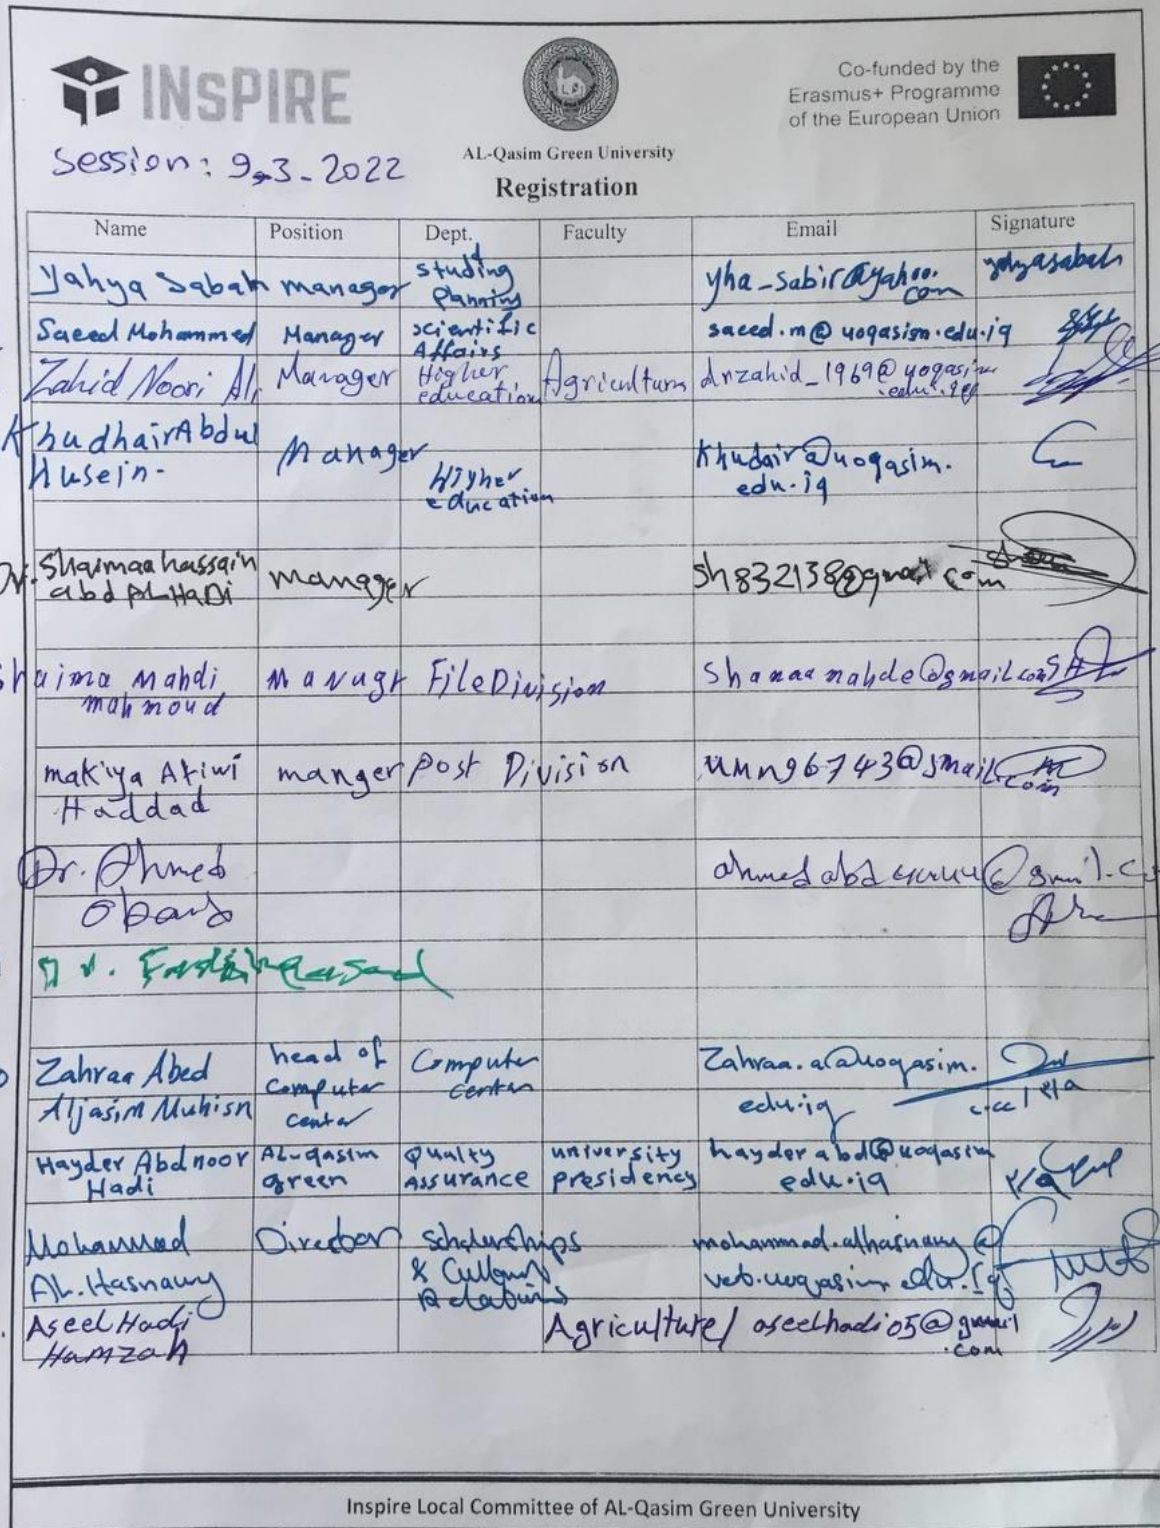 INSPIRE
Co-funded by the
Erasmus+ Programme
of the European Union
Session: 9-3-2022
AL-Qasim Green University
Registration
Name Position Dept. Faculty Email Signature
Yahya Sabah manager studing planning yha_sabir@yahoo.com yahyasabah
Saeed Mohammed Manager scientific Affairs saeed.m@uoqasim.edu.iq
Zahid Noori Manager Higher education Agriculture
Khudhair Abdul Husein. Manager Higher education Khudair@uoqasim.edu.iq
Dr. Shaimaa hassain abd ALHaDi manager sh832138@gmail.com
Shaima Mahdi mahmoud Manager File Division
makiya Atiwi Haddad manger post Division
Dr. Ahmed
Dr.
Zahraa Abed Aljasim Muhisn head of Computer center Computer center Zahraa.a@uoqasim.edu.iq
Hayder Abdnoor Hadi AL-qasim green Qualty Assurance university presidency hayder abd@uoqasim edu.iq
Mohammad AL.Hasnawy Director Scholarships & Relations
Aseel Hadi Hamzah Agriculture/ aseelhadi05@gmail.com
Inspire Local Committee of AL-Qasim Green University